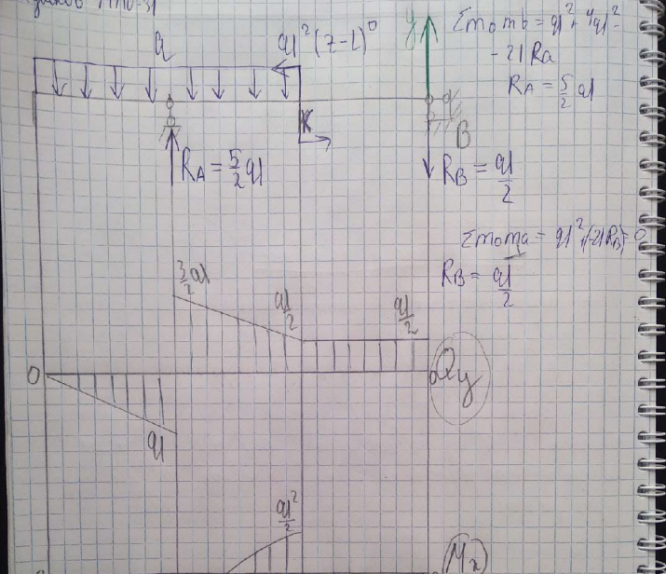 q
ql²(z-l)⁰
y
Σmomb = ql² + 4ql² -
- 2lRa
R_A = 5/2 ql
K
B
R_A = 5/2 ql
R_B = ql/2
Σmoma = ql²+(-2lR_B) = 0
R_B = ql/2
3/2 ql
ql/2
ql/2
0
0
Qy
ql
ql²/2
Mx